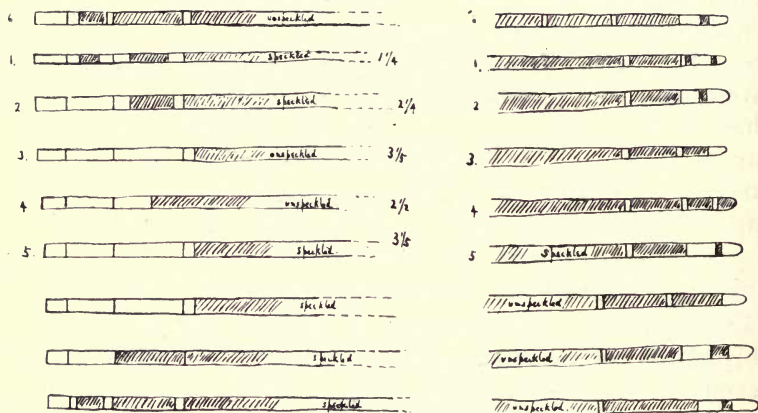 6 unspeckled
1. speckled 1¼ 1.
2 speckled 2¼ 2
3. unspeckled 3⅕ 3.
4 unspeckled 2½ 4
5. speckled. 3⅕ 5 speckled
speckled unspeckled
speckled unspeckled
speckled unspeckled